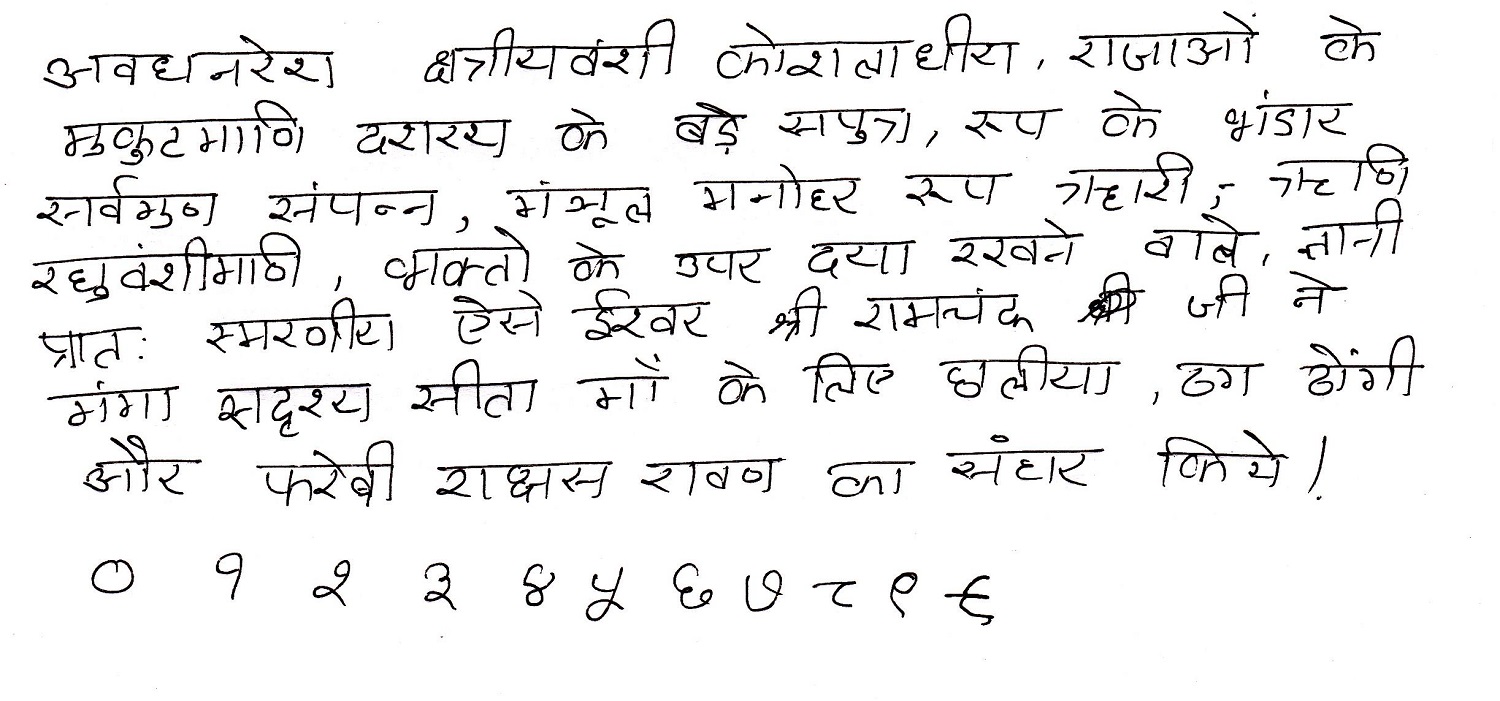 अवधनरेश क्षत्रीयवंशी कोशलाधीश, राजाओं के
मुकुटमाणि दशरथ के बड़े सपुत्र, रूप के भंडार
सर्वगुण संपन्न, मंजूल मनोहर रूप
रघुवंशीमाणि, भक्तो के उपर दया रखने वाले, ज्ञानी
प्रातः स्मरणीय ऐसे ईश्वर श्री रामचंद्र जी ने
गंगा सदृश्य सीता माँ के लिए छलीया, ठग ढोंगी
और फरेबी राक्षस रावण का संहार किये।
० १ २ ३ ४ ५ ६ ७ ८ ९